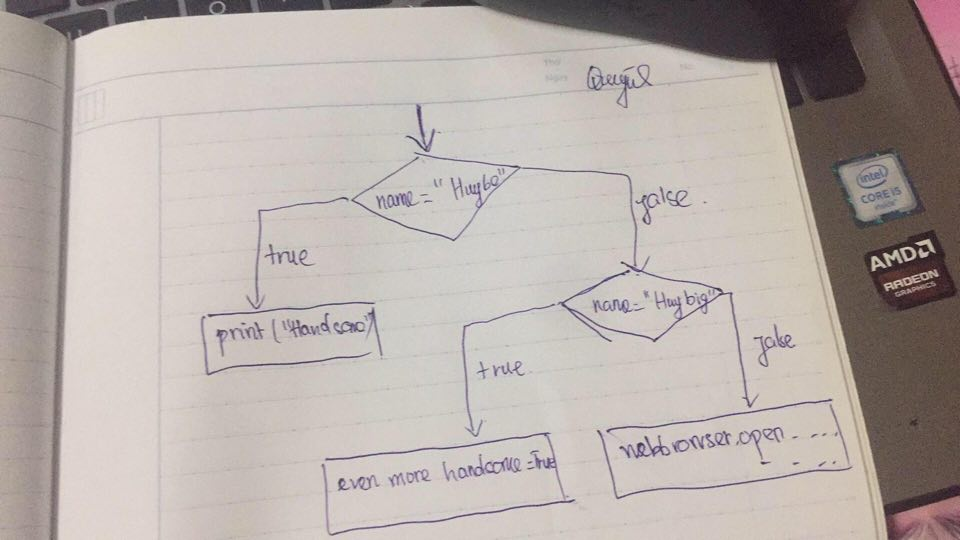 name="Huybe"
true
false.
print("Handsome")
name="Huybig"
true.
false
even more handsome=True
webbrowser.open - ...
intel
CORE i5
inside
AMD
RADEON
GRAPHICS